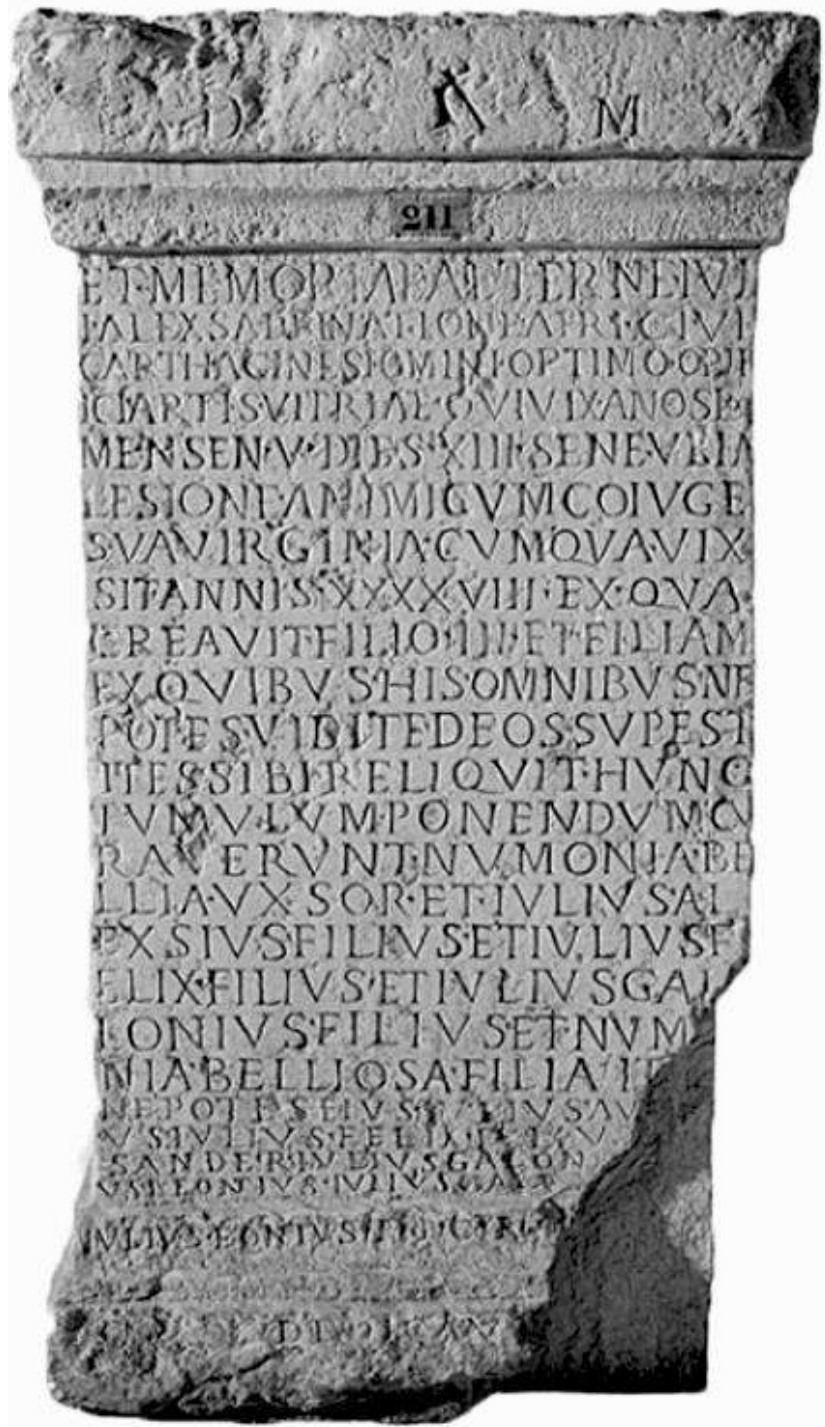 D M
211
ET·MEMORIAE AETERNE IVL
I·ALEXSADRI NATIONE AFRI·CIVI
CARTHAGINESI OMINI OPTIMO OPIF
ICI ARTIS VITRIAE QVI VIX ANOS
MENSEN·V·DIES XIII·SENE VLLA
LESIONE ANIMI CVM COIVGE
SVA VIRGINIA·CVM QVA VIX
SIT ANNIS XXXXVIII·EX·QVA
CREAVIT FILIO III ET FILIAM
EX QVIBVS HIS OMNIBVS NE
POTES VIDIT EDEOS SVPEST
ITES SIBI RELIQVIT HVNC
TVMVLVM PONENDVM CV
RAVERVNT·NVMONIA BE
LLIA·VXSOR·ET·IVLIVS AL
EXSIVS FILIVS ET IVLIVS F
ELIX FILIVS ET IVLIVS GAL
LONIVS FILIVS ET NVM
NIA BELLIOSA FILIA IT
NEPOTES EIVS
VS IVLIVS FELIX
SANDER IVLIVS GALON
VS LEONTIVS IVLIVS GALL
IVLIVS EONIVS